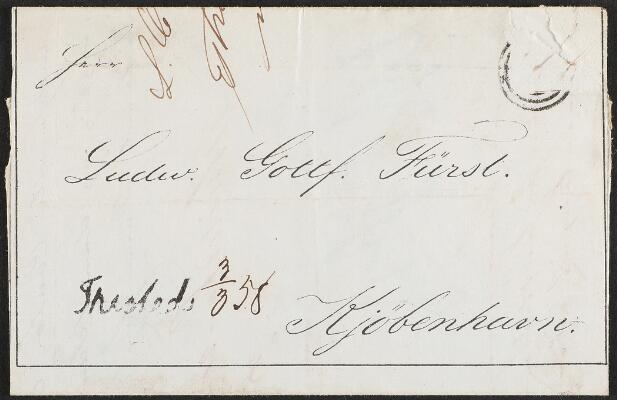 Herr
Ludw. Gottf. Fürst.
Thisted 3/3 58
Kjöbenhavn.